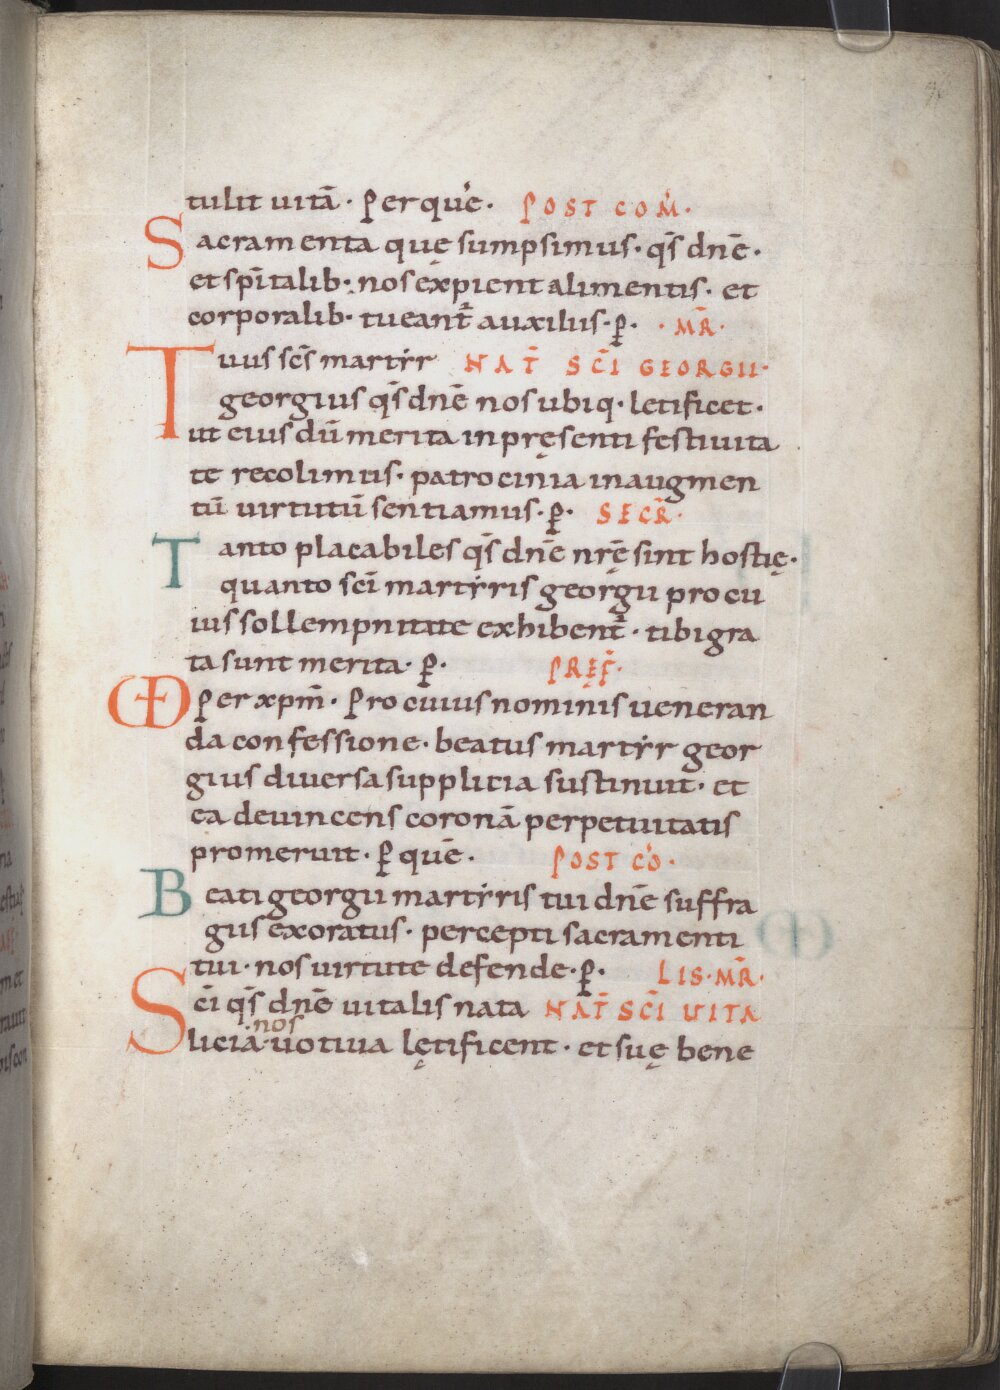 tulit uitā· Per quē· POST COM̄·
Sacramenta quę sumpsimus· qs̄ dn̄e·
et sp̄italib· nos expient alimentis· et
corporalib· tueant̄ auxiliis· p̲· ·MR̄·
Tuus sc̄s martẏr NAT̄ SC̄I GEORGII·
georgius qs̄ dn̄e nos ubiq· letificet·
ut eius dū merita in pręsenti festiuita
te recolimus· patrocinia in augmen
tū uirtutū sentiamus· p̲· SECR̄·
Tanto placabiles qs̄ dn̄e nr̄ę sint hostię·
quanto sc̄i martẏris georgii pro cu
ius sollempnitate exhibent̄· tibi gra
ta sunt merita· p̲· PRĘF̄·
UD Per xpm̄· Pro cuius nominis ueneran
da confessione· beatus martẏr geor
gius diuersa supplicia sustinuit· et
ea deuincens coronā perpetuitatis
promeruit· p̲ quē· POST CŌ·
Beati georgii martẏris tui dn̄e suffra
giis exoratus· percepti sacramenti
tui· nos uirtute defende· p̲· LIS·MR̄·
Sc̄i qs̄ dn̄e uitalis nata NAT̄ SC̄I UITA
·nos
licia· uotiua lętificent· et suę bene